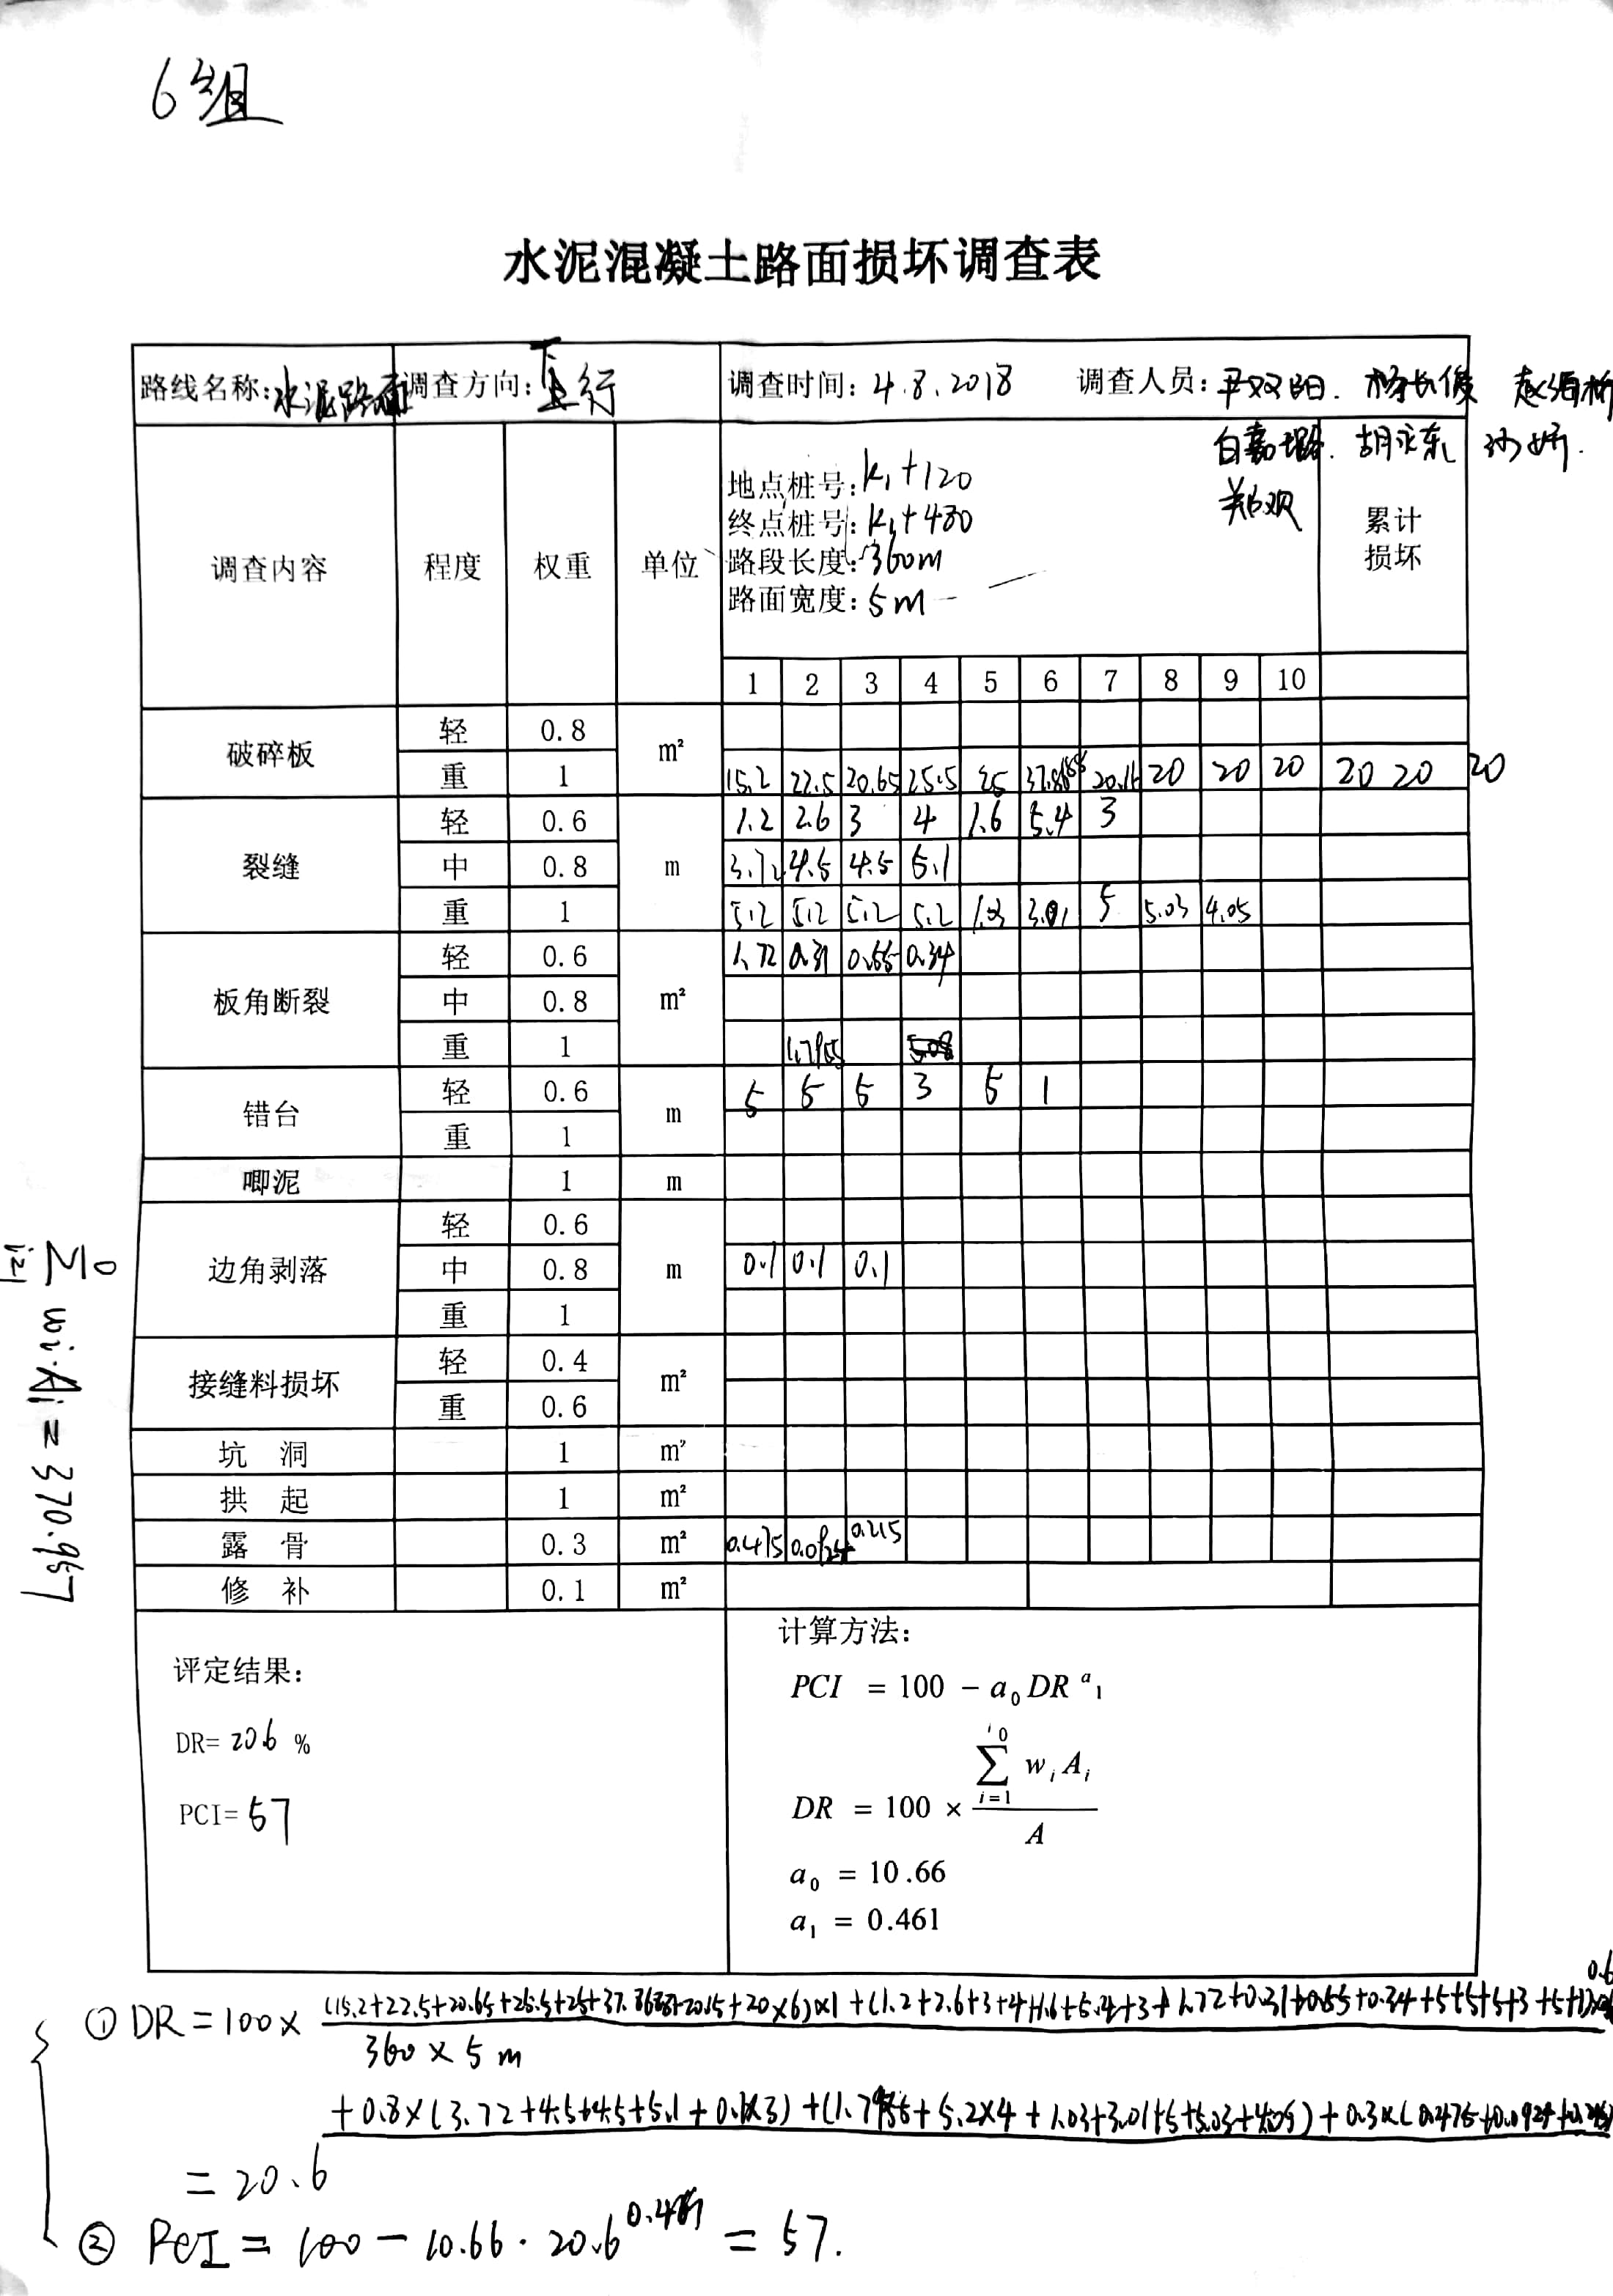 6组
水泥混凝土路面损坏调查表
路线名称:水泥路面 调查方向:下行 调查时间: 4.8.2018 调查人员:
白嘉璐. 胡永东
地点桩号: K1+120
终点桩号: K1+480
路段长度: 360m
路面宽度: 5m
调查内容 程度 权重 单位 累计损坏
1 2 3 4 5 6 7 8 9 10
破碎板 轻 0.8 m²
重 1 15.2 22.5 20.65 25.5 25 20.16 20 20 20 20 20 20
裂缝 轻 0.6 m 1.2 2.6 3 4 1.6 5.4 3
中 0.8 3.72 4.5 4.5 5.1
重 1 5.2 5.2 5.2 5.2 1.03 3.01 5 5.03 4.05
板角断裂 轻 0.6 m² 1.72 0.31 0.55 0.34
中 0.8
重 1 1.7955
错台 轻 0.6 m 5 5 5 3 5 1
重 1
唧泥 1 m
边角剥落 轻 0.6 m
中 0.8 0.1 0.1 0.1
重 1
接缝料损坏 轻 0.4 m²
重 0.6
坑 洞 1 m²
拱 起 1 m²
露 骨 0.3 m² 0.475 0.0924 0.215
修 补 0.1 m²
评定结果:
DR= 20.6 %
PCI= 57
计算方法:
PCI = 100 - a₀ DR^a₁
DR = 100 × Σ(i=1, i0) wᵢAᵢ / A
a₀ = 10.66
a₁ = 0.461
Σ(i=1, i0) wi·Ai = 370.957
① DR = 100 × (15.2+22.5+20.65+25.5+25+37.8688+20.15+20×6)×1 + (1.2+2.6+3+4+1.6+5.4+3+1.72+0.31+0.55+0.34+5+5+5+3+5+1)×0.6
360 × 5 m
+0.8×(3.72+4.5+4.5+5.1+0.1×3)+(1.7955+5.2×4+1.03+3.01+5+5.03+4.05)+0.3×(0.475+0.0924+0.215)
= 20.6
② PCI = 100 - 10.66 · 20.6^0.461 = 57.